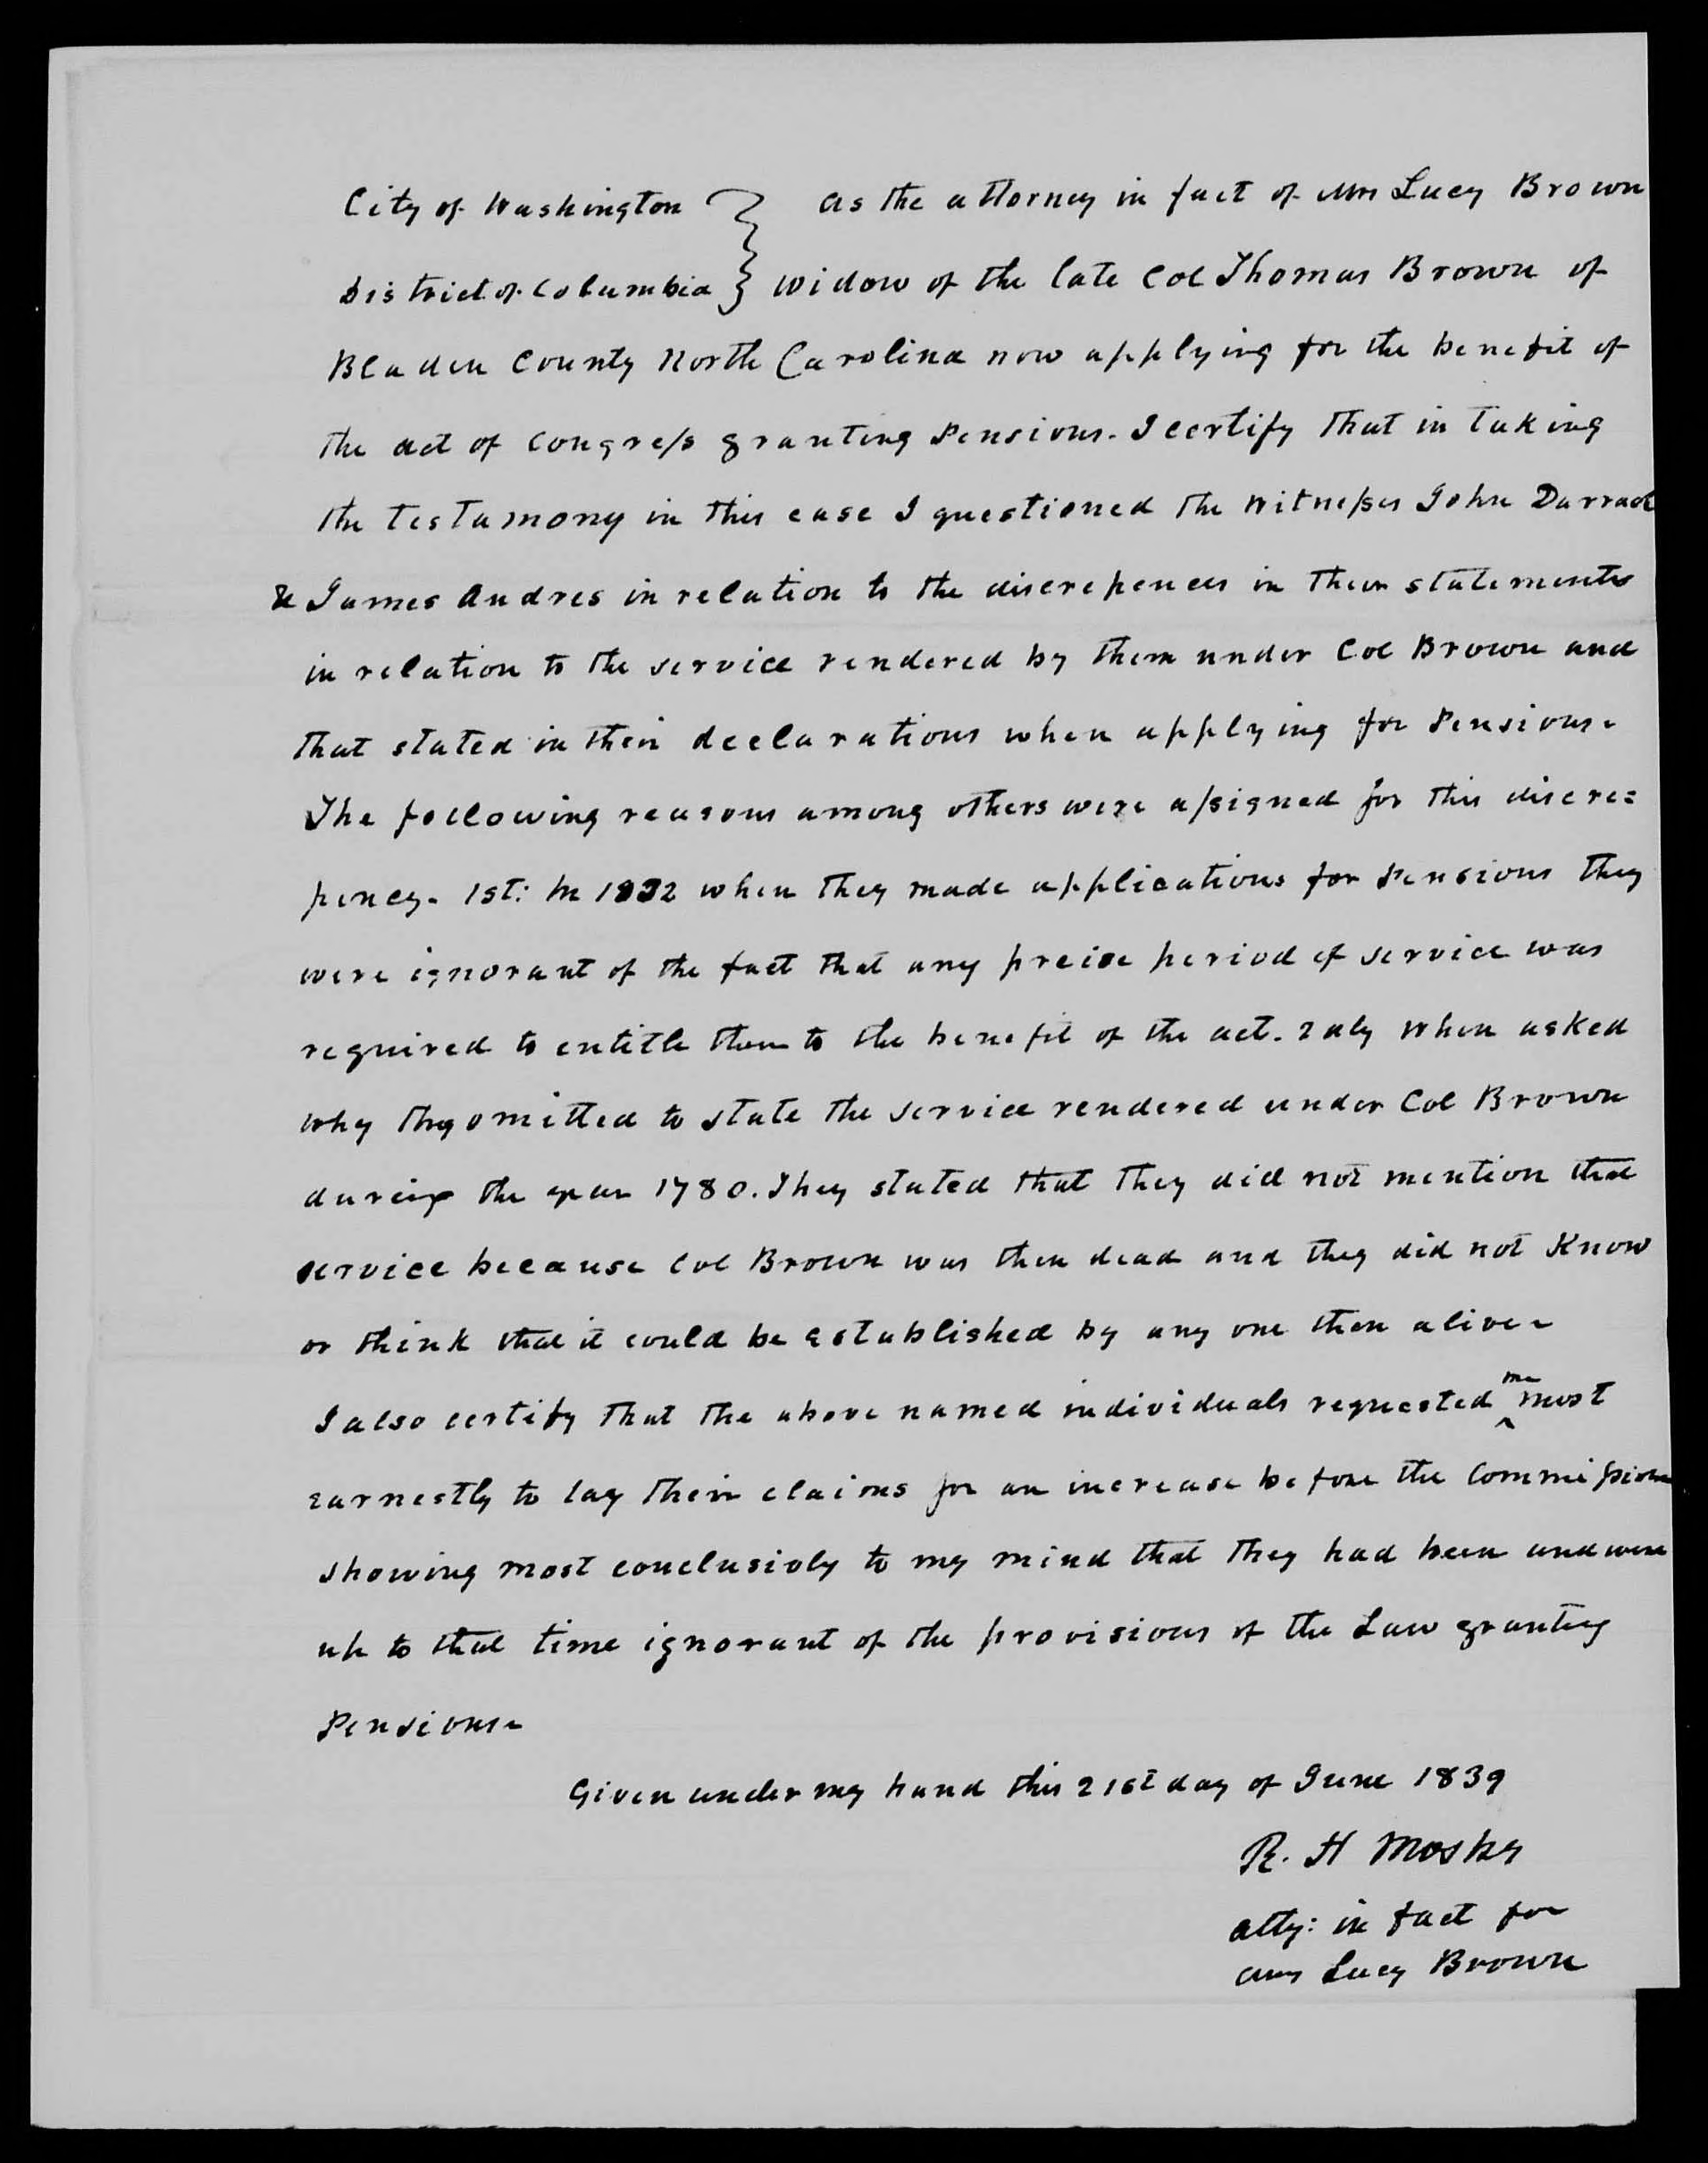 City of Washington } As the attorney in fact of Mrs Lucy Brown
District of Columbia } Widow of the late Col Thomas Brown of
Bladen County North Carolina now applying for the benefit of
the act of Congress granting Pensions. I certify that in taking
the testamony in this case I questioned the Witnesses John Darrach
& James Andres in relation to the discrepences in their statements
in relation to the service rendered by them under Col Brown and
that stated in their declarations when applying for Pensions.
The following reasons among others were assigned for this discre=
pency. 1st: In 1832 when they made applications for Pensions they
were ignorant of the fact that any precise period of service was
required to entitle them to the benefit of the act. 2dly When asked
why they omitted to state the service rendered under Col Brown
during the year 1780. They stated that they did not mention that
service because Col Brown was then dead and they did not Know
or think that it could be established by any one then alive.
I also certify that the above named individuals requested me most
earnestly to lay their claims for an increase before the Commissioner
showing most conclusivly to my mind that they had been and were
up to that time ignorant of the provisions of the Law granting
Pensions.
Given under my hand this 21st day of June 1839
R. H Mosby
atty: in fact for
Mrs Lucy Brown